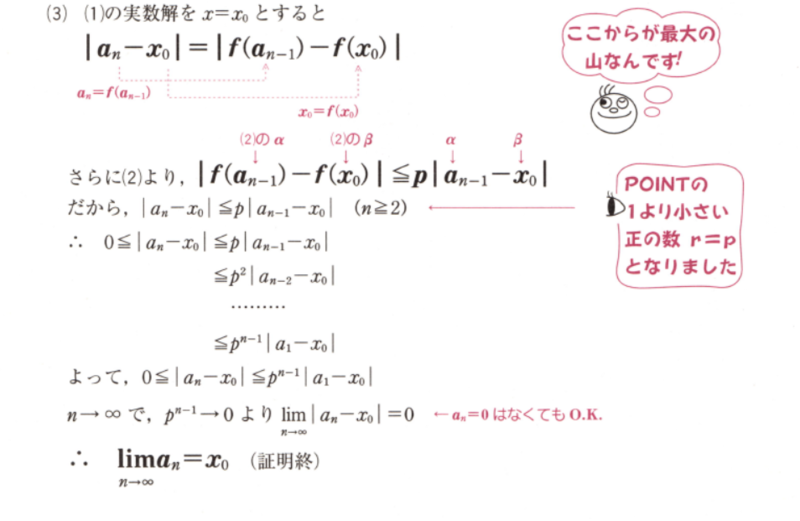 (3) (1)の実数解を x=x₀ とすると
|aₙ−x₀|=|f(aₙ₋₁)−f(x₀)|
aₙ=f(aₙ₋₁)
x₀=f(x₀)
ここからが最大の
山なんです!
(2)のα (2)のβ α β
さらに(2)より,|f(aₙ₋₁)−f(x₀)|≦p|aₙ₋₁−x₀|
だから,|aₙ−x₀|≦p|aₙ₋₁−x₀| (n≧2)
POINTの
1より小さい
正の数 r=p
となりました
∴ 0≦|aₙ−x₀|≦p|aₙ₋₁−x₀|
≦p²|aₙ₋₂−x₀|
………
≦pⁿ⁻¹|a₁−x₀|
よって,0≦|aₙ−x₀|≦pⁿ⁻¹|a₁−x₀|
n→∞で,pⁿ⁻¹→0 より lim|aₙ−x₀|=0 ←aₙ=0 はなくても O.K.
n→∞
∴ limaₙ=x₀ (証明終)
n→∞